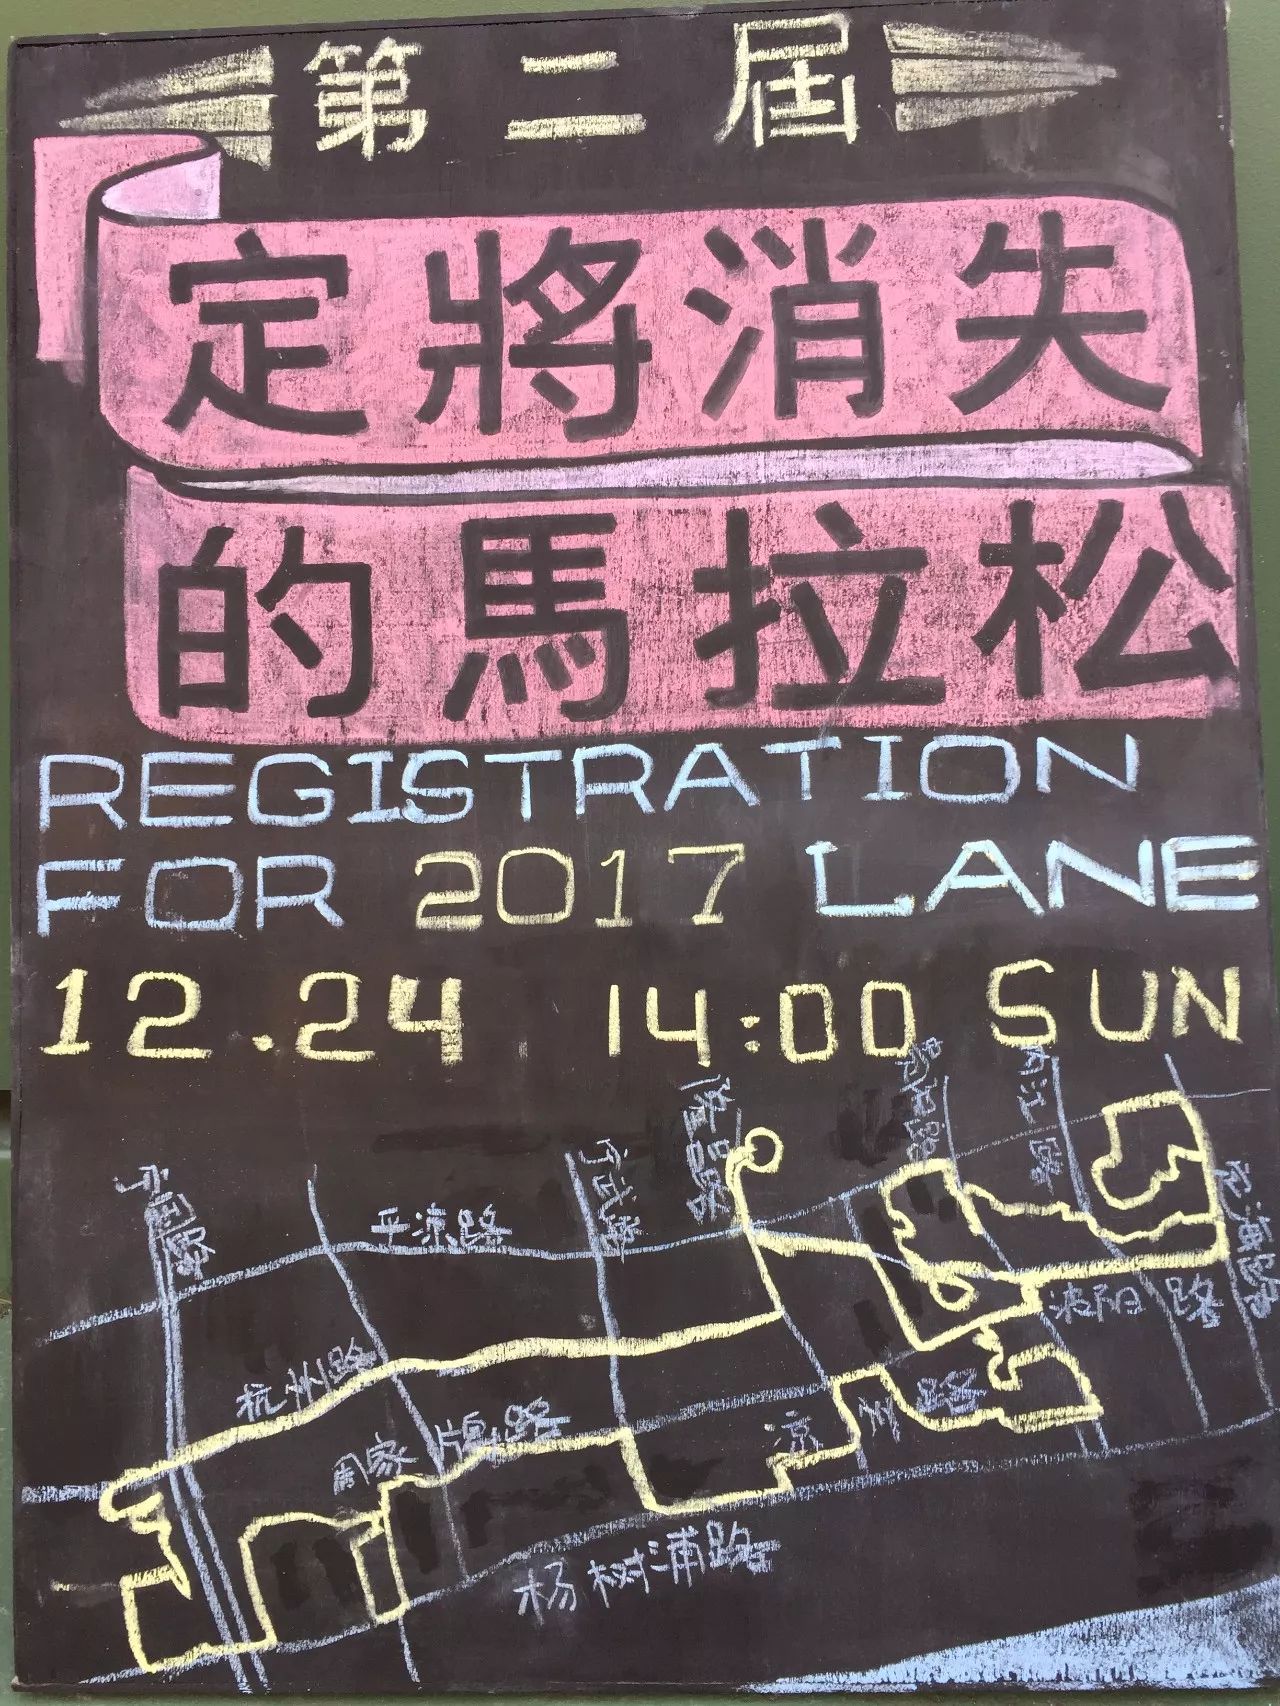 第二届
定將消失
的馬拉松
REGISTRATION
FOR 2017 LANE
12.24 14:00 SUN
隆昌路
内江路
宁国路
平凉路
宁武路
波阳路
杭州路
周家牌路
凉州路
杨树浦路